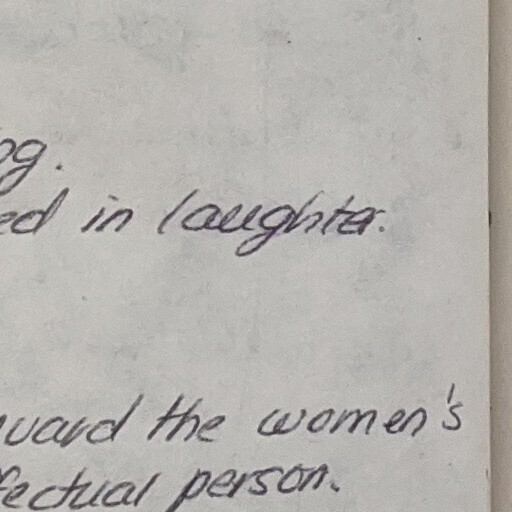 og.
ed in laughter.
ward the women's
fectual person.